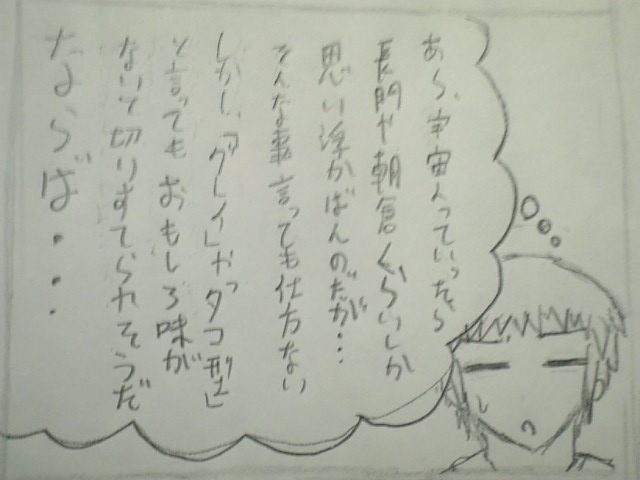 あ〜、宇宙人っていったら
長門や朝倉くらいしか
思い浮かばんのだが・・・
そんな事言っても仕方ない
しかし、「グレイ」や「タコ型」
と言ってもおもしろ味が
ないで切りすてられそうだ
ならば・・・